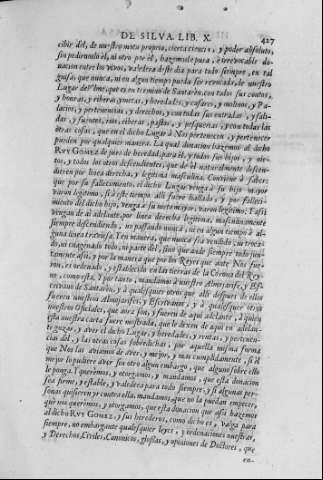 DE SILVA LIB. X. 427
cibir del, de nuestro motu proprio, cierta ciencia, y poder absoluto,
sin pedirnoslo el, ni otro por el, hazemosle pura, è irrevocable do-
nacion entre los vivos, valedera deste dia para todo siempre, en tal
guisa, que nunca, ni en algun tiempo pueda ser revocada, de nuestro
Lugar del que es en termino de Santarèn, con todos sus coutos,
y honras, y riberas, y heredades, y casares, y molinos, y Pa-
lacios, y pertenencias, y derechos, y con todas sus entradas, y sali-
das, y fuentes, rios, riberas, pastos, y pesqueras, y con todas las
otras cosas, que en el dicho Lugar à Nos pertenecen, y pertenecer
pueden por qualquier manera. La qual donacion hazemos al dicho
RUY GOMEZ de juro de heredad, para èl, y todos sus hijos, y nie-
tos, y todos los otros descendientes, que de èl naturalmente descen-
dieren por linea derecha, y legitima masculina. Conviene à saber:
que por su fallecimiento, el dicho Lugar venga à su hijo mayor
varon legitimo, si à este tiempo alli fuere hallado, y por falleci-
miento del dicho hijo, venga à su nieto mayor, varon legitimo; y assi
vengan de ai adelante, por linea derecha legitima, masculinamente
siempre descendiendo, no passando nunca, ni en algun tiempo à al-
guna linea traviesa. Y en manera, que nunca sea vendido, ni troca-
do, ni enagenado todo, ni parte del, sino que ande siempre todo jun-
tamente assi, y por la manera que por los Reyes que ante Nos fue-
ron, es ordenado, y establecido en las tierras de la Corona del Rey-
no, como esta. Y por tanto, mandamos à nuestro Almojarife, y Es-
crivano de Santarèn, y à qualesquier otros que alli despues de ellos
fueren nuestros Almojarifes, y Escrivanos, y à qualesquier otros
nuestros Oficiales, que aora son, y fueren de aqui adelante, à quien
esta nuestra carta fuere mostrada, que le dexen de aqui en adelan-
te gozar, y aver el dicho Lugar, y heredades, y rentas, y pertenen-
cias del, y las otras cosas sobredichas, por aquella misma forma
que Nos las aviamos de aver, y mejor, y mas cumplidamente, si èl
mejor lo pudiere aver sin otro algun embargo, que alguno sobre ello
le ponga. Y queremos, y otorgamos, y mandamos, que esta donacion
sea firme, y estable, y valedera para todo siempre, y si algunas per-
sonas quisieren yr contra ella, mandamos, que no la puedan empecer,
que nos queremos, y otorgamos, que esta donacion que assi hazemos
al dicho RUY GOMEZ, y sus herederos, como dicho es, valga para
siempre, no embargante qualesquier leyes, y ordenaciones nuestras,
y Derechos, Civiles, Canonicos, glossas, y opiniones de Doctores, que
en-